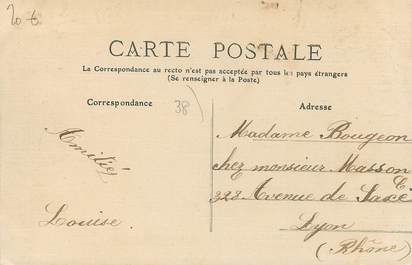 20 €
CARTE POSTALE
La Correspondance au recto n'est pas acceptée par tous les pays étrangers
(Se renseigner à la Poste)
Correspondance
38
Adresse
Amitiés
Louise.
Madame Bougeon
chez monsieur Masson
328 Avenue de Saxe
Lyon
(Rhône)